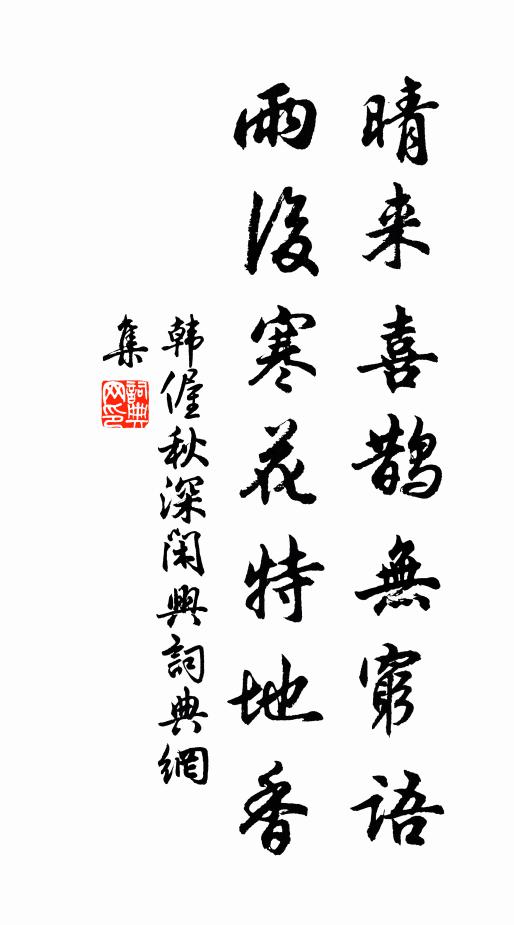 晴来喜鹊無窮語
雨後寒花特地香
韩偓秋深閑興詞典網
集
詞典
网印